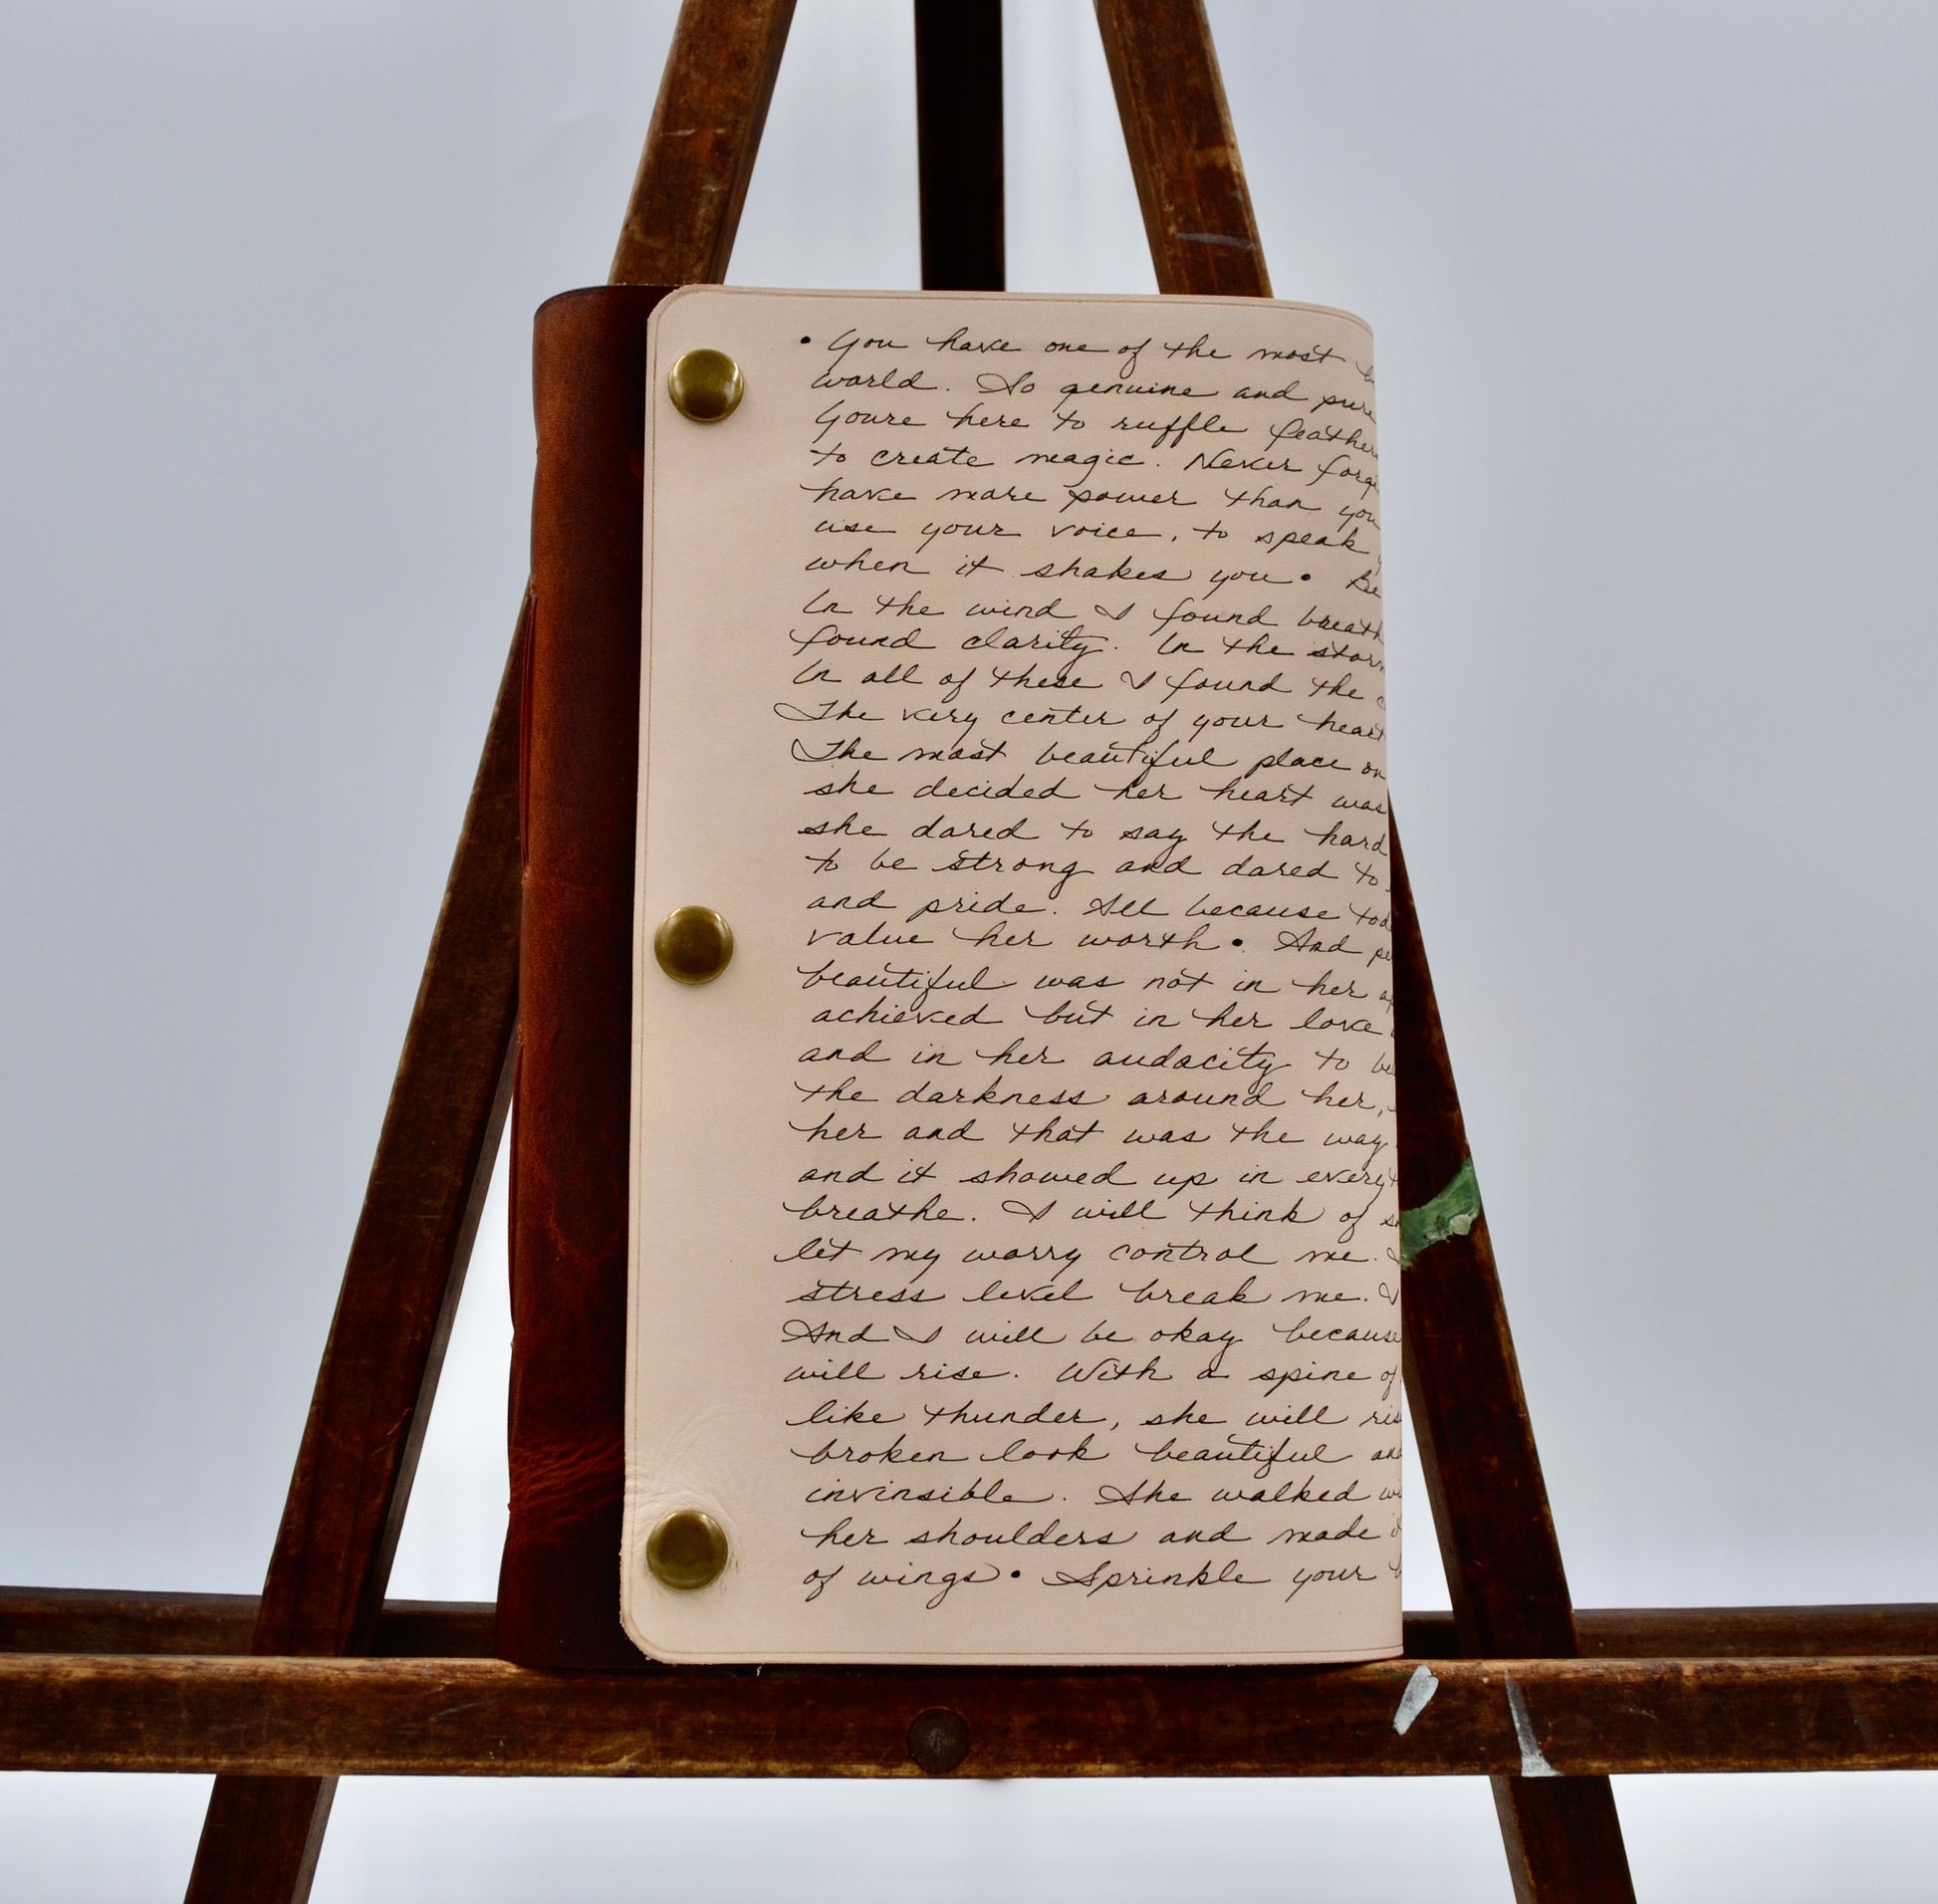 • You have one of the most
world. So genuine and pure
Youre here to ruffle feather
to create magic. Never forge
have more power than you
use your voice, to speak
when it shakes you • Be
In the wind I found breath
found clarity. In the storm
In all of these I found the
The very center of your heart
The most beautiful place on
she decided her heart was
she dared to say the hard
to be strong and dared to
and pride. All because tod
value her worth • And pe
beautiful was not in her
achieved but in her love
and in her audacity to be
the darkness around her,
her and that was the way
and it showed up in every
breathe. I will think of
let my worry control me.
stress level break me. I
And I will be okay because
will rise. With a spine of
like thunder, she will ris
broken look beautiful and
invinsible. She walked wi
her shoulders and made
of wings • Sprinkle your